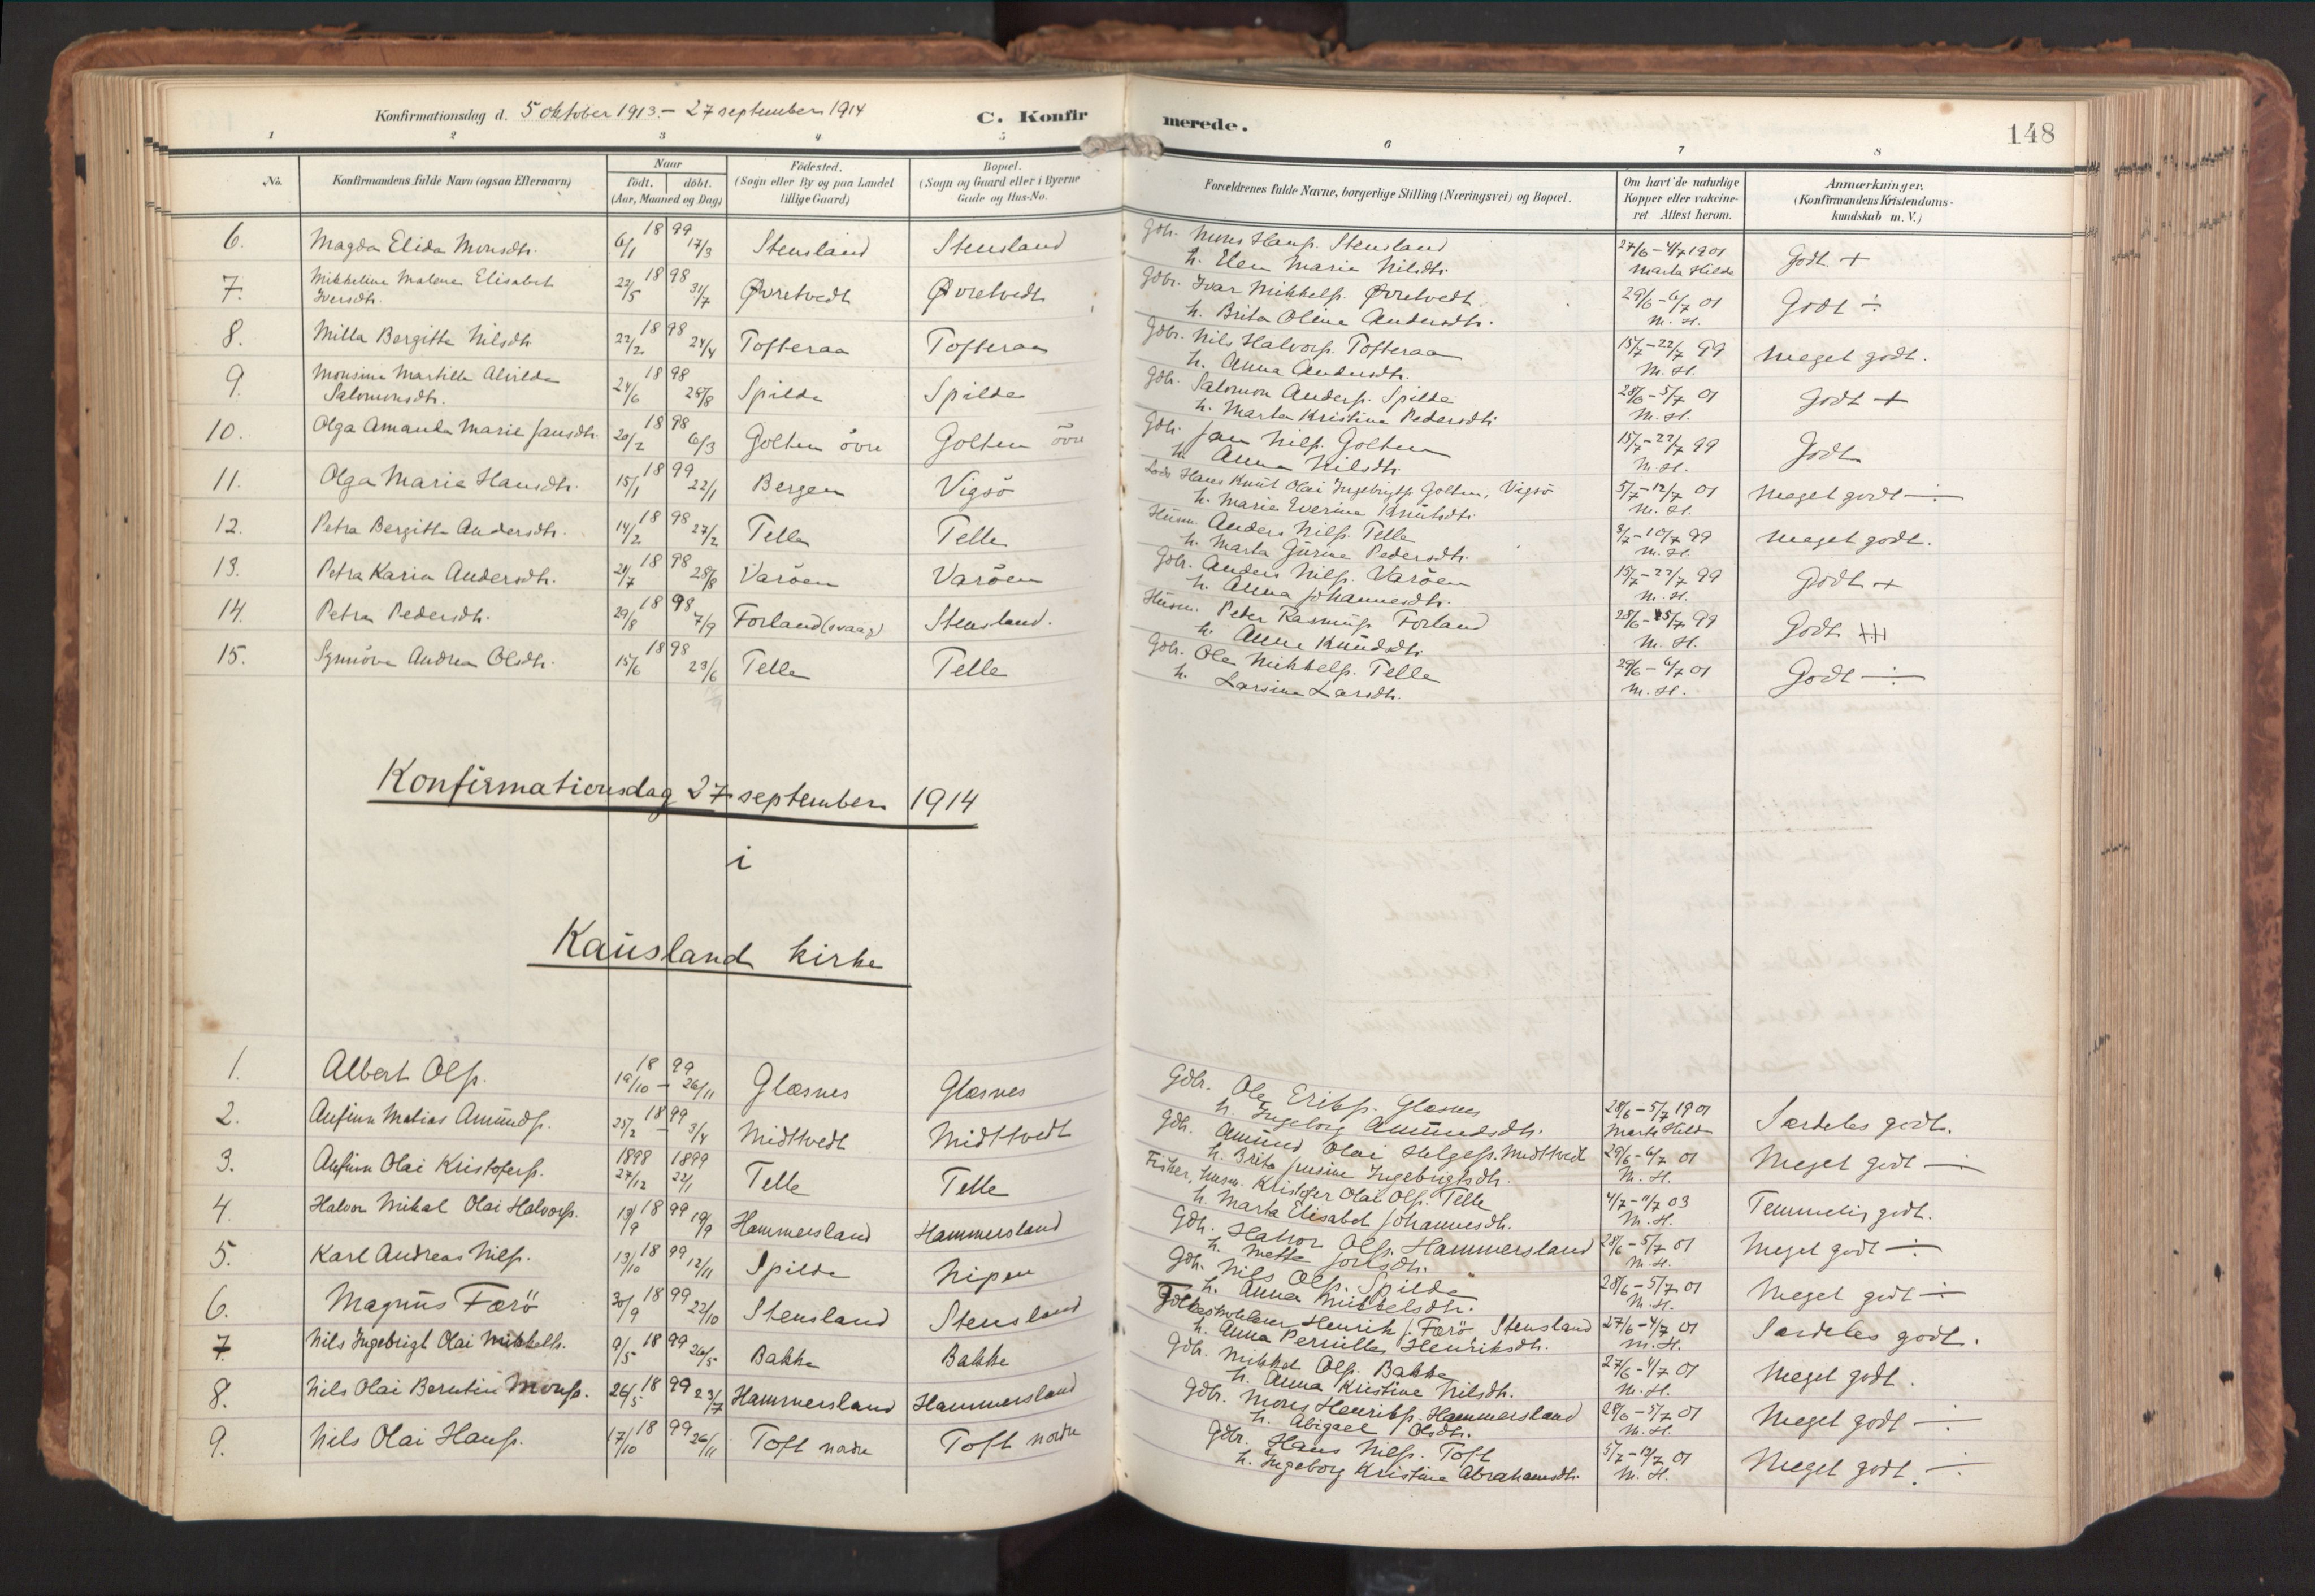 Konfirmationsdag d. 5 oktober 1913 – 27 september 1914
C. Konfirmerede.
148
1 2 3 4 5 6 7 8
No.
Konfirmandens fulde Navn (ogsaa Efternavn)
Naar
födt. döbt.
(Aar, Maaned og Dag)
Födested.
(Sogn eller By og paa Landet
tillige Gaard)
Bopæl.
(Sogn og Gaard eller i Byerne
Gade og Hus-No.
Forældrenes fulde Navne, borgerlige Stilling (Næringsvei) og Bopæl.
Om havt de naturlige
Kopper eller vakcine-
ret Attest herom.
Anmærkninger.
(Konfirmandens Kristendoms-
kundskab m. V.)
6. Magda Elida Monsdtr. 1899 6/1 17/3 Stensland Stensland Gbr. Mons Hanss. Stensland 27/6 – 4/7 1901 Godt +
h. Elen Marie Nilsdtr. Marta Hilde
7. Mikkeline Malene Elisabet 1898 22/5 31/7 Øvretvedt Øvretvedt Gbr. Ivar Mikkels. Øvretvedt 29/6 – 6/7 01 Godt ÷
Iversdtr. h. Brita Oline Andersdtr. M. H.
8. Milla Bergitte Nilsdtr 1898 22/2 24/4 Tofteraa Tofteraa Gbr. Nils Halvors. Tofteraa 15/7 – 22/7 99 Meget godt.
h. Anna Andersdtr. M. H.
9. Monsine Martille Alvilde 1898 24/6 28/8 Spilde Spilde Gbr. Salomon Anders. Spilde 28/6 – 5/7 01 Godt +
Salomonsdtr. h. Marta Kristine Pedersdtr M. H.
10. Olga Amanda Marie Jansdtr. 1898 20/2 6/3 Golten övre Golten övre Gbr. Jan Nils. Golten 15/7 – 22/7 99 Godt
h. Anna Nilsdtr. M. H.
11. Olga Marie Hansdtr. 1899 15/1 22/1 Bergen Vigsö Lods Hans Knut Olai Ingebrigts. Golten, Vigsö 5/7 – 12/7 01 Meget godt ÷
h. Marie Everine Knutsdtr M. H.
12. Petra Bergitte Andersdtr. 1898 14/2 27/2 Telle Telle Husm. Anders Nils. Telle 3/7 – 10/7 99 Meget godt.
h. Marta Gurine Pedersdtr. M. H.
13. Petra Karine Andersdtr. 1898 21/7 28/8 Varöen Varöen Gbr. Anders Nils. Varöen 15/7 – 22/7 99 Godt +
h. Anna Johannesdtr. M. H.
14. Petra Pedersdtr. 1898 29/8 7/9 Forland (svaag) Stensland. Husm. Peder Rasmus. Forland 28/6 – 5/7 99 Godt
h. Anne Knudsdtr. M. H.
15. Synnöve Andrea Olsdtr. 1898 15/6 23/6 Telle Telle Gbr. Ole Mikkels. Telle 29/6 – 6/7 01 Godt ÷
h. Larsine Larsdtr. M. H.
Konfirmationsdag 27 september 1914
i
Kausland kirke
1. Albert Ols. 1899 19/10 – 26/11 Glæsnes Glæsnes Gbr. Ole Eriks. Glæsnes 28/6 – 5/7 1901 Særdeles godt.
h. Ingeborg Amundsdtr. Marta Hilde
2. Anfinn Matias Amunds. 1899 25/2 – 3/4 Midttvedt Midttvedt Gbr. Amund Olai Helges. Midttvedt 29/6 – 6/7 01 Meget godt ÷
h. Brita Jensine Ingebrigtsdtr. M. H.
3. Anfinn Olai Kristofers. 1898 27/12 1899 22/1 Telle Telle Fisker, husm. Kristofer Olai Ols. Telle 4/7 – 11/7 03 Temmelig godt.
h. Marta Elisabet Johannesdtr. M. H.
4. Halvor Mikal Olai Halvors. 1899 19/9 Hammersland Hammersland Gbr. Halvor Ols. Hammersland 28/6 – 5/7 01 Meget godt ÷
h. Mette M. H.
5. Karl Andreas Nils. 1899 13/10 12/11 Spilde Nipen Gbr. Nils Ols. Spilde 28/6 – 5/7 01 Meget godt ÷
h. Anna Mikkelsdtr. M. H.
6. Magnus Færö 1899 30/9 22/10 Stensland Stensland Henrik J. Færö, Stensland 27/6 – 4/7 01 Særdeles godt.
h. Anna Pernille Henriksdtr. M. H.
7. Nils Ingebrigt Olai Mikkels. 1899 9/5 26/5 Bakke Bakke Gbr. Mikkel Ols. Bakke 27/6 – 4/7 01 Meget godt.
h. Anna Kristine Nilsdtr. M. H.
8. Nils Olai Berntin Mons. 1899 26/5 23/7 Hammersland Hammersland Gbr. Mons Henriks. Hammersland 28/6 – 5/7 01 Meget godt ÷
h. Abigael Olsdtr. M. H.
9. Nils Olai Hans. 1899 17/10 26/11 Toft nordre Toft nordre Gbr. Hans Nils. Toft 5/7 – 12/7 01 Meget godt ÷
h. Ingeborg Kristine Abrahamsdtr. M. H.